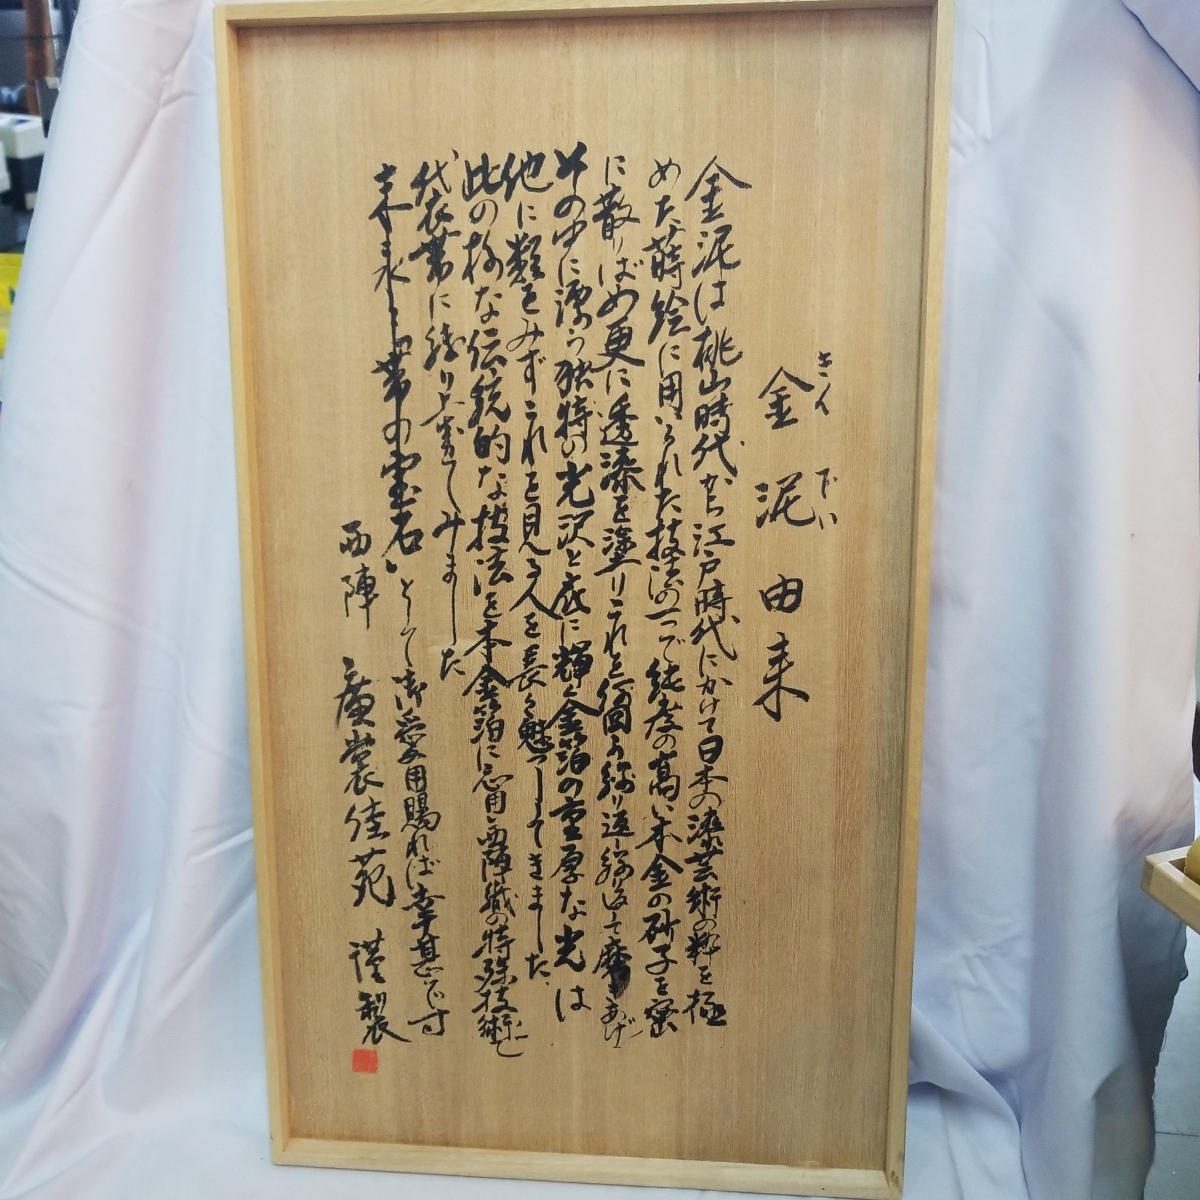 きんでい
金泥由来
金泥は桃山時代から江戸時代にかけて日本の漆芸術の粋を極
めた蒔絵に用いられた技法の一つで純度の高い本金の砂子を密
に散りばめ更に透漆を塗りこれを何回も繰り返し繰り返して磨きあげ
その中に漂う独特の光沢と底に輝く金箔の重厚な光は
他に類をみずこれを見る人を長く魅了してきました
此の様な伝統的な技法を本金箔に応用西陣織の特殊技術と
代衣帯に織り上げてみました
末永く帯の宝石として御愛用賜れば幸甚です
西陣 廣裳佳苑 謹製